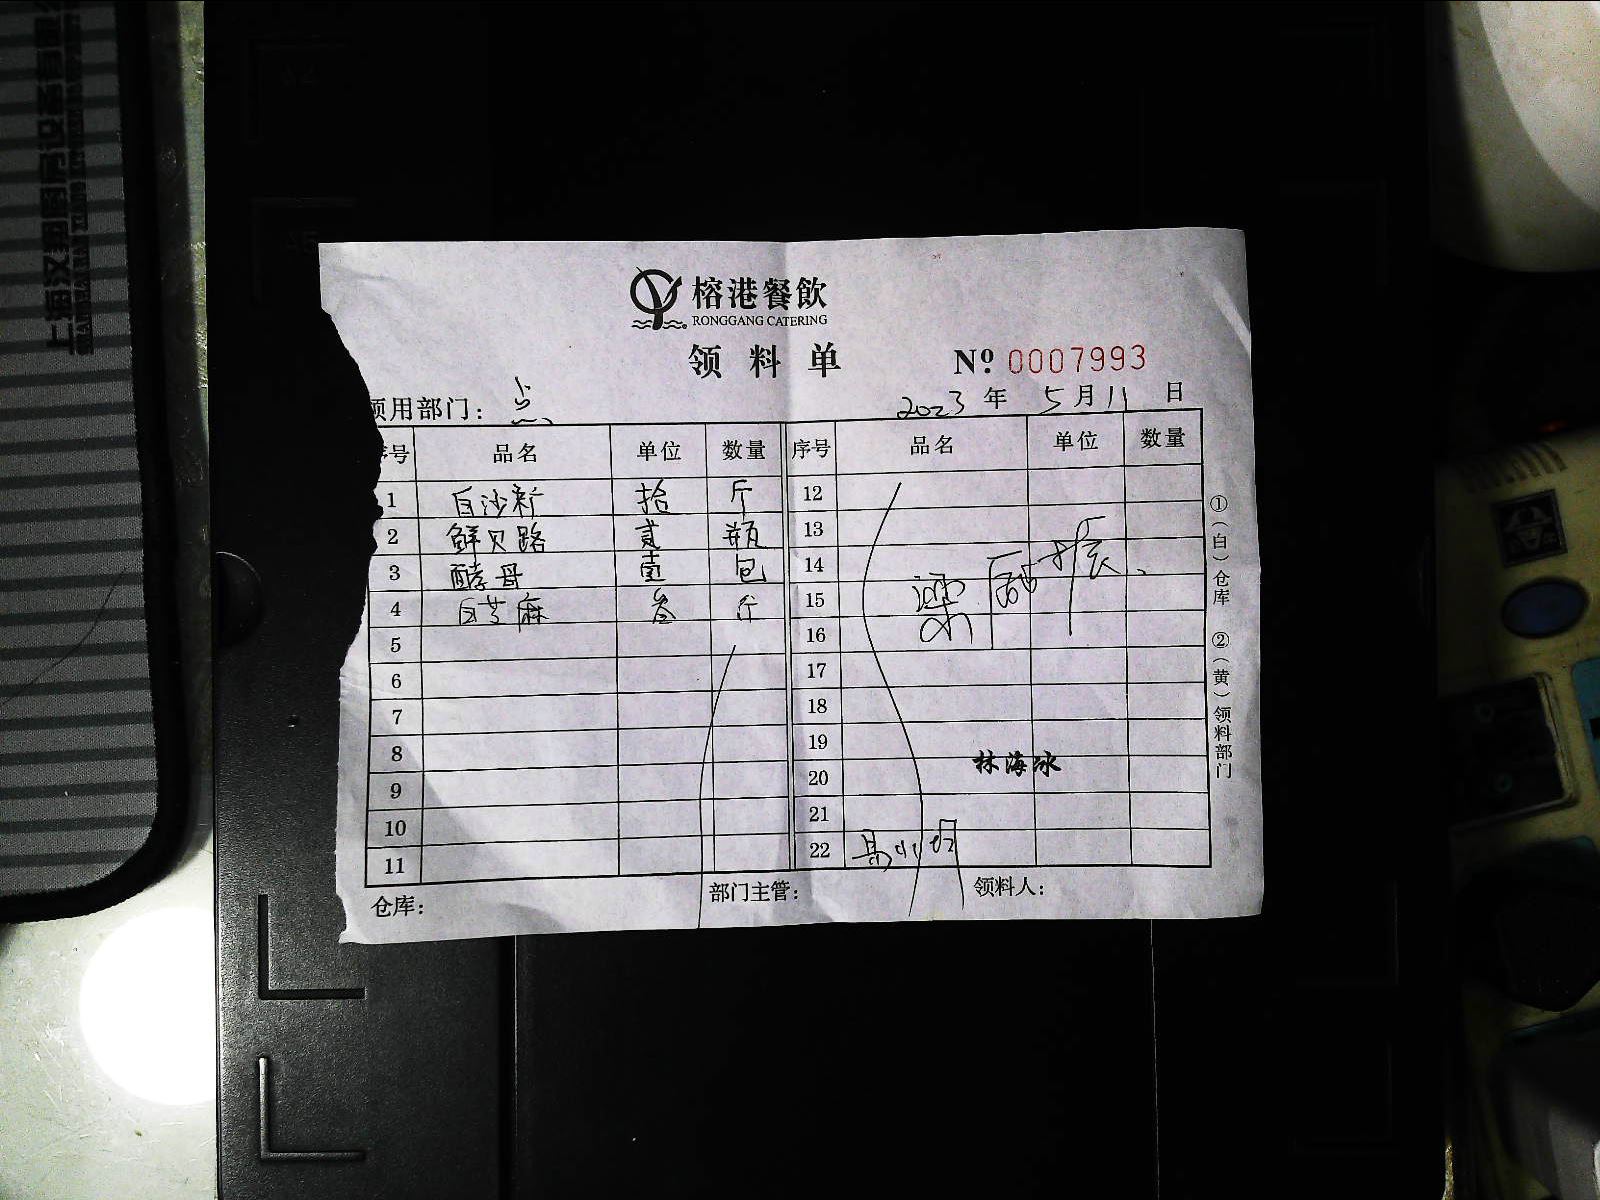 榕港餐飲
RONGGANG CATERING
领料单
Nº 0007993
领用部门：点
2023 年 5 月 11 日
序号 品名 单位 数量 序号 品名 单位 数量
1 白沙 拾 斤 12
2 鲜贝路 贰 瓶 13
3 酵母 壹 包 14
4 白芝麻 叁 斤 15
5 16
6 17
7 18
8 19
9 20
10 21
11 22
林海冰
仓库： 部门主管： 领料人：
①（白）仓库 ②（黄）领料部门